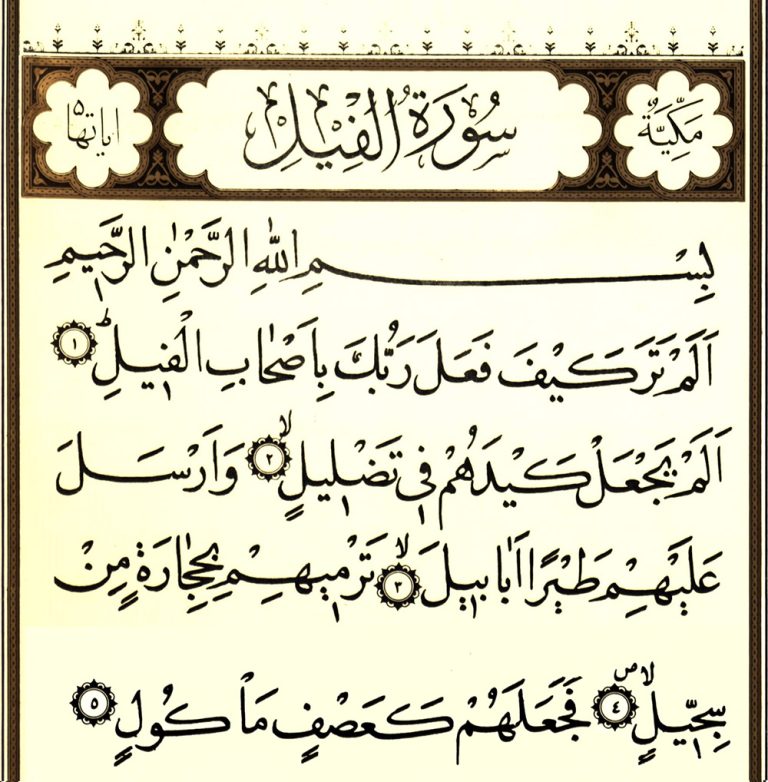 مَكِّيَّةٌ سُورَةُ الْفِيلِ اياتها ٥
بِسْمِ اللّٰهِ الرَّحْمٰنِ الرَّحِيمِ
اَلَمْ تَرَ كَيْفَ فَعَلَ رَبُّكَ بِاَصْحَابِ الْفِيلِ ﴿١﴾
اَلَمْ يَجْعَلْ كَيْدَهُمْ فِي تَضْلِيلٍ ﴿٢﴾ وَاَرْسَلَ
عَلَيْهِمْ طَيْرًا اَبَابِيلَ ﴿٣﴾ تَرْمِيهِمْ بِحِجَارَةٍ مِنْ
سِجِّيلٍ ﴿٤﴾ فَجَعَلَهُمْ كَعَصْفٍ مَاْكُولٍ ﴿٥﴾